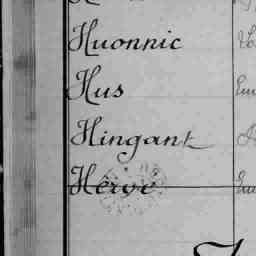 Huonnic
Hus
Hingant
Hervé